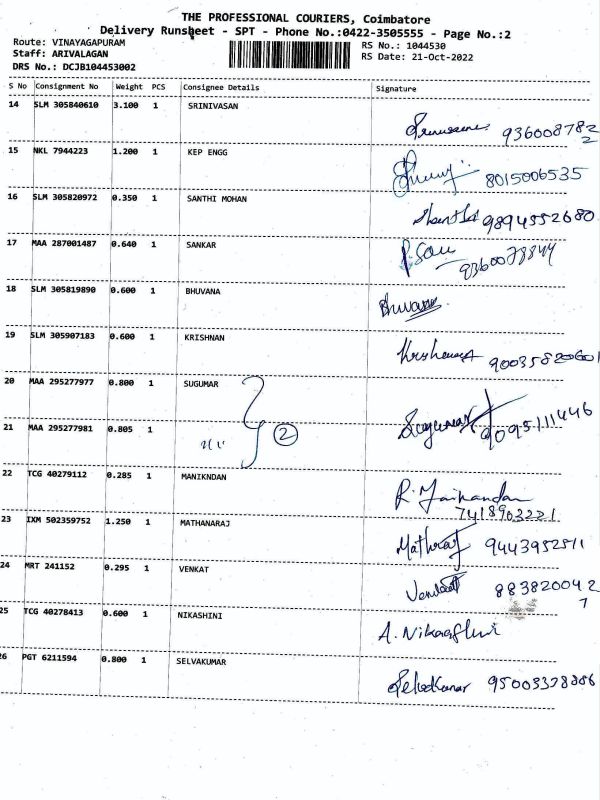 THE PROFESSIONAL COURIERS, Coimbatore
Delivery Runsheet - SPT - Phone No.:0422-3505555 - Page No.:2
Route: VINAYAGAPURAM
Staff: ARIVALAGAN
DRS No.: DCJB104453002
RS No.: 1044530
RS Date: 21-Oct-2022
S No Consignment No Weight PCS Consignee Details Signature
14 SLM 305840610 3.100 1 SRINIVASAN
936008782
2
15 NKL 7944223 1.200 1 KEP ENGG
8015006535
16 SLM 305820972 0.350 1 SANTHI MOHAN
9894552680
17 MAA 287001487 0.640 1 SANKAR
9360078844
18 SLM 305819890 0.600 1 BHUVANA
Bhuvana
19 SLM 305907183 0.600 1 KRISHNAN
90035820601
20 MAA 295277977 0.800 1 SUGUMAR
Sugumar 9095111446
21 MAA 295277981 0.805 1 2
22 TCG 40279112 0.285 1 MANIKNDAN
7418903221
23 IXM 502359752 1.250 1 MATHANARAJ
Mathraj 9443952511
24 MRT 241152 0.295 1 VENKAT
883820042
7
25 TCG 40278413 0.600 1 NIKASHINI
26 PGT 6211594 0.800 1 SELVAKUMAR
Selvakumar